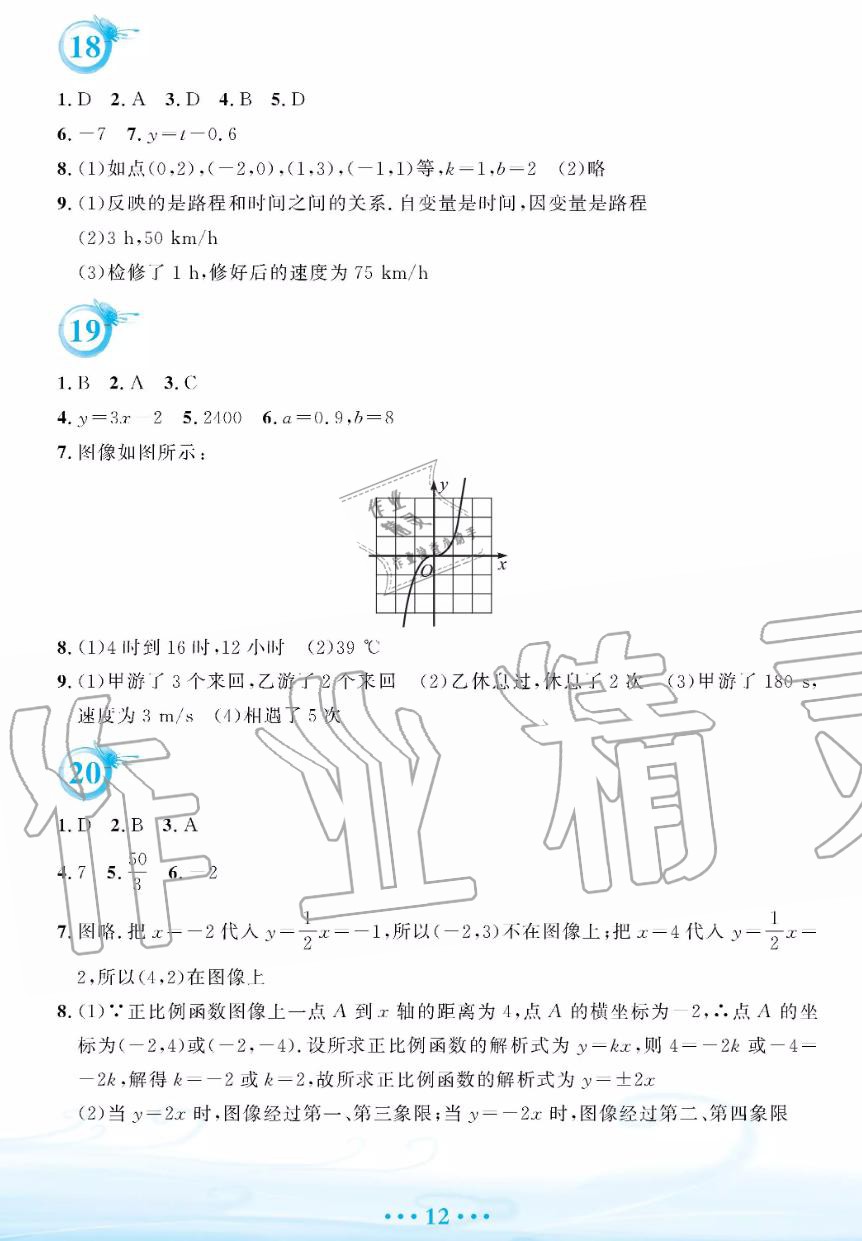 18
1. D 2. A 3. D 4. B 5. D
6. －7 7. y＝t－0.6
8. (1)如点(0,2),(－2,0),(1,3),(－1,1)等,k＝1,b＝2 (2)略
9. (1)反映的是路程和时间之间的关系. 自变量是时间,因变量是路程
(2)3 h,50 km/h
(3)检修了 1 h,修好后的速度为 75 km/h
19
1. B 2. A 3. C
4. y＝3x－2 5. 2400 6. a＝0.9,b＝8
7. 图像如图所示:
y
作业
精灵
作业检查小助手
O
x
8. (1)4 时到 16 时,12 小时 (2)39 ℃
9. (1)甲游了 3 个来回,乙游了 2 个来回 (2)乙休息过,休息了 2 次 (3)甲游了 180 s,
速度为 3 m/s (4)相遇了 5 次
作业精灵
20
1. D 2. B 3. A
4. 7 5. 50/3 6. －2
7. 图略. 把 x＝－2 代入 y＝1/2x＝－1,所以(－2,3)不在图像上;把 x＝4 代入 y＝1/2x＝
2,所以(4,2)在图像上
8. (1)∵正比例函数图像上一点 A 到 x 轴的距离为 4,点 A 的横坐标为－2,∴点 A 的坐
标为(－2,4)或(－2,－4). 设所求正比例函数的解析式为 y＝kx,则 4＝－2k 或－4＝
－2k,解得 k＝－2 或 k＝2,故所求正比例函数的解析式为 y＝±2x
(2)当 y＝2x 时,图像经过第一、第三象限;当 y＝－2x 时,图像经过第二、第四象限
··· 12 ···